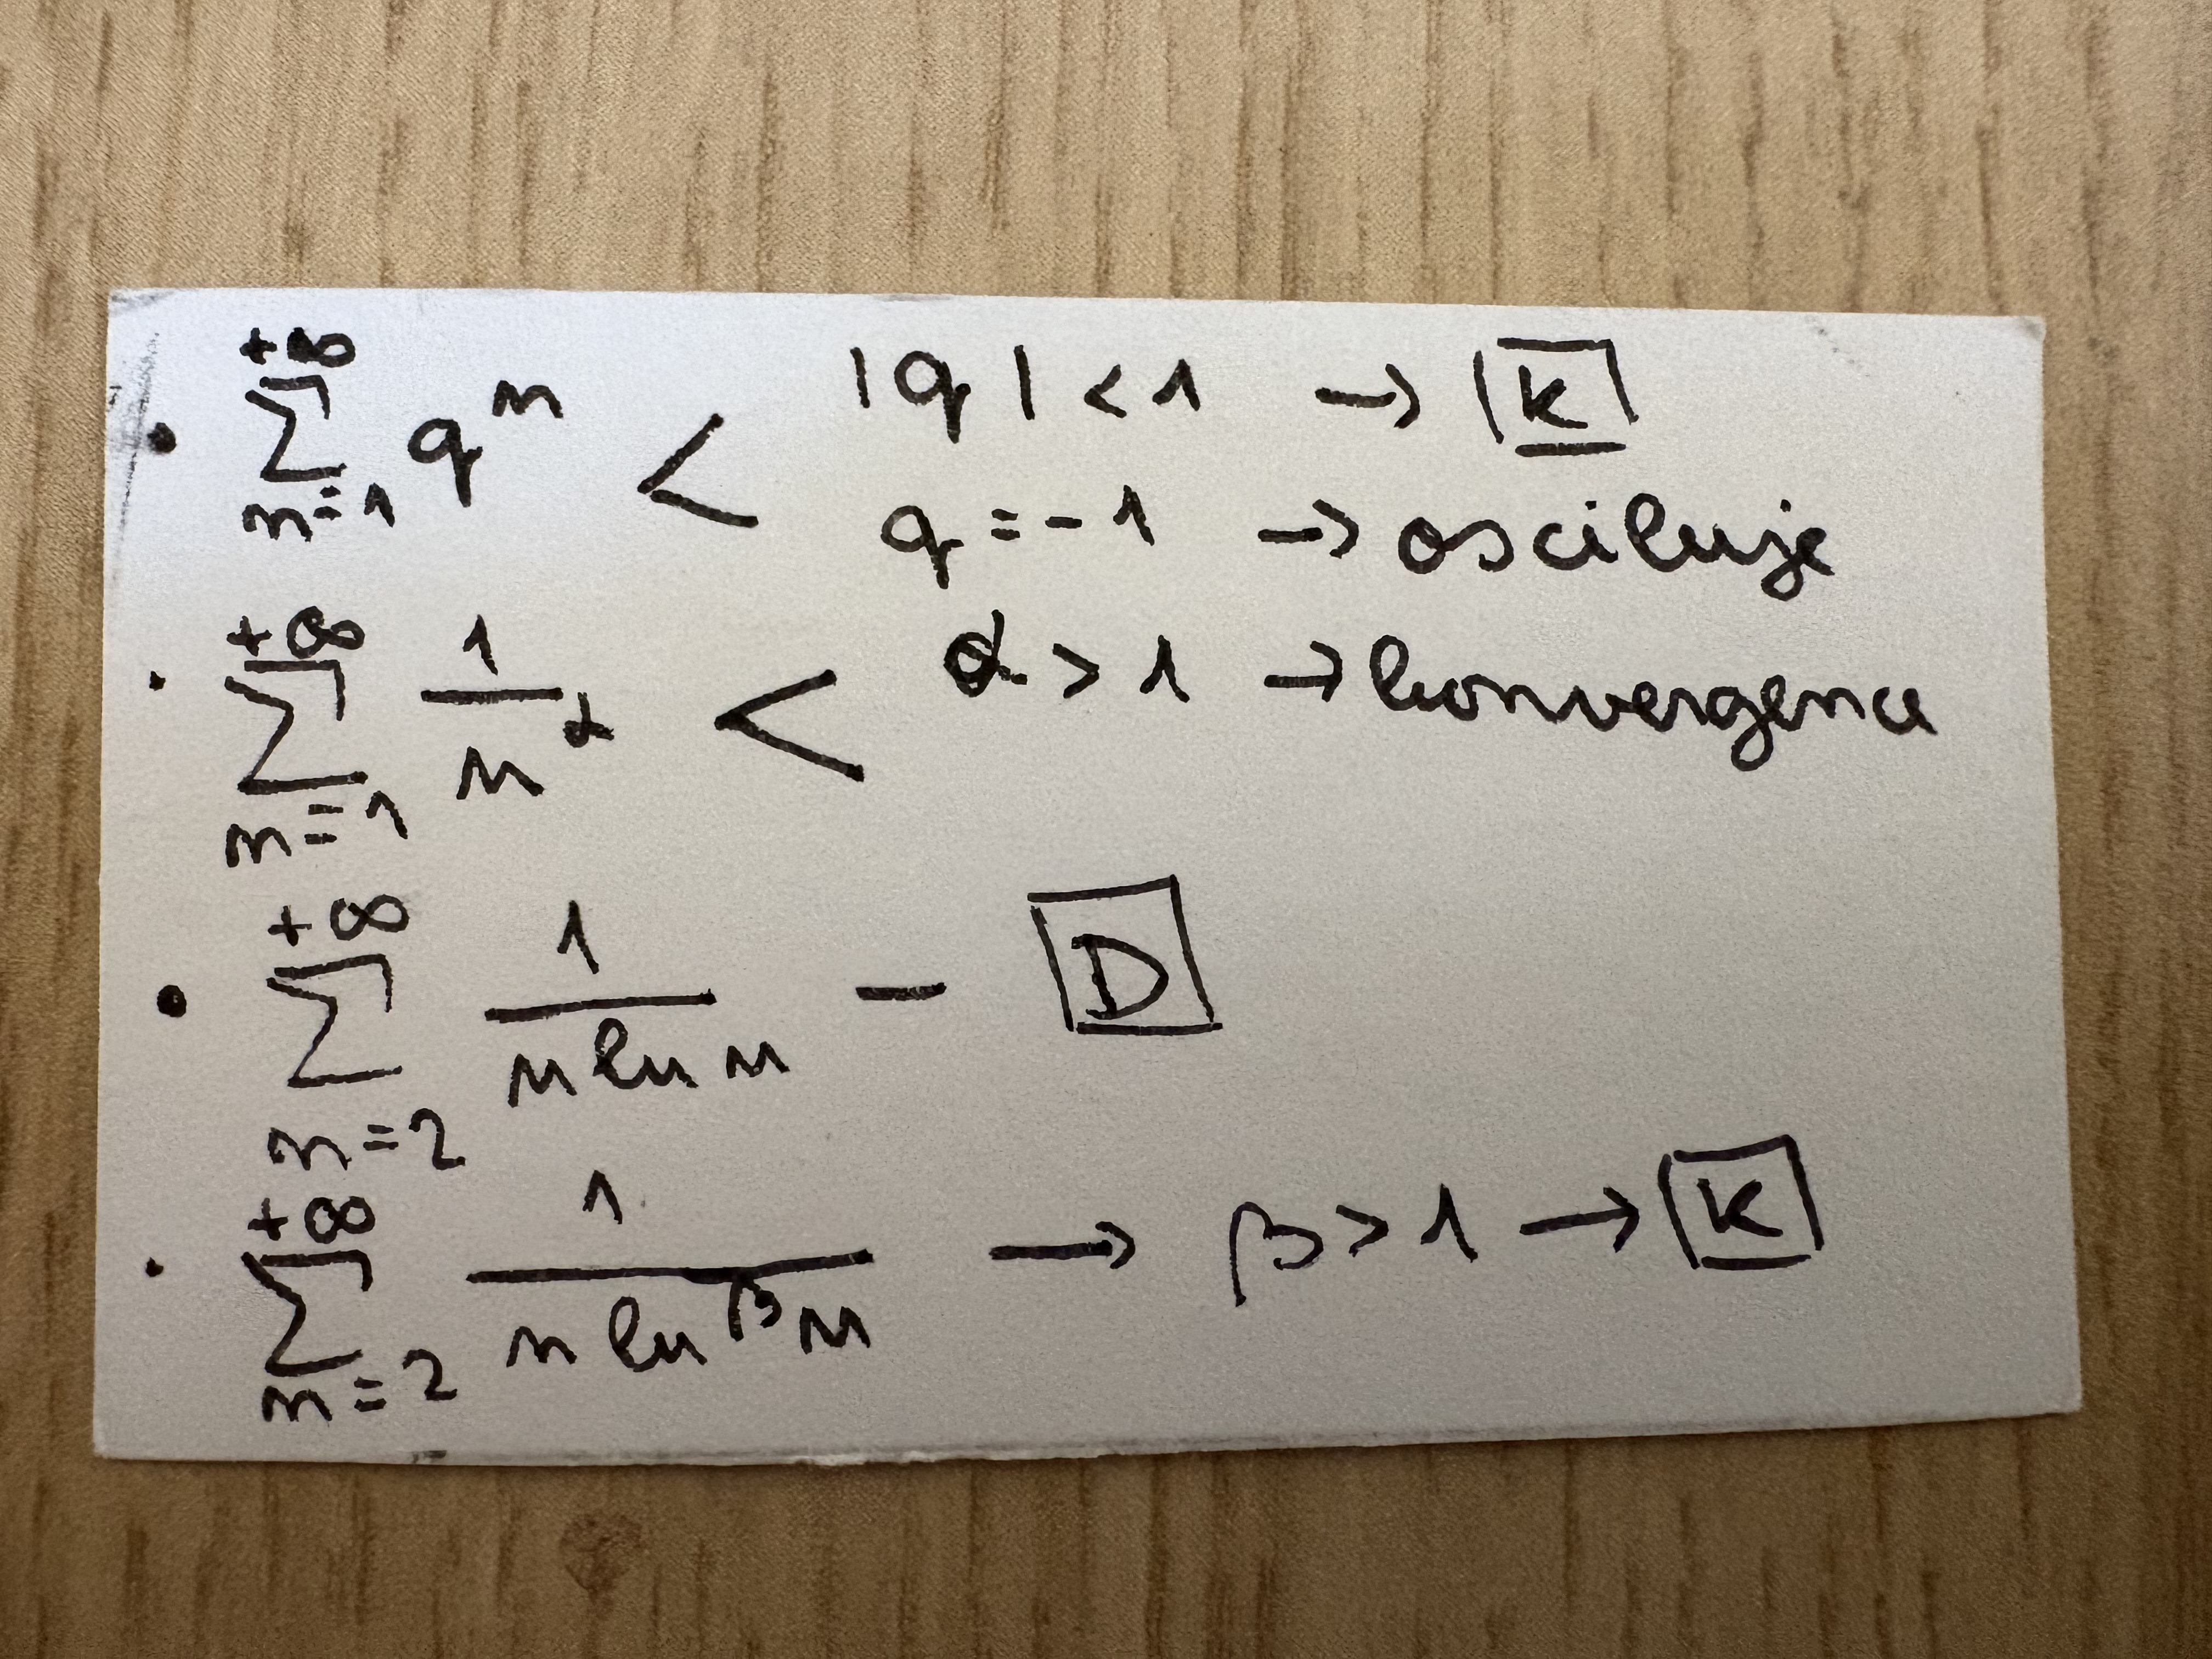 • ∑_{n=1}^{+∞} q^n < |q| < 1 → K
q = -1 → osciluje
• ∑_{n=1}^{+∞} 1/n^α < α > 1 → konvergena
• ∑_{n=2}^{+∞} 1/(n ln n) – D
• ∑_{n=2}^{+∞} 1/(n ln^β n) → β > 1 → K